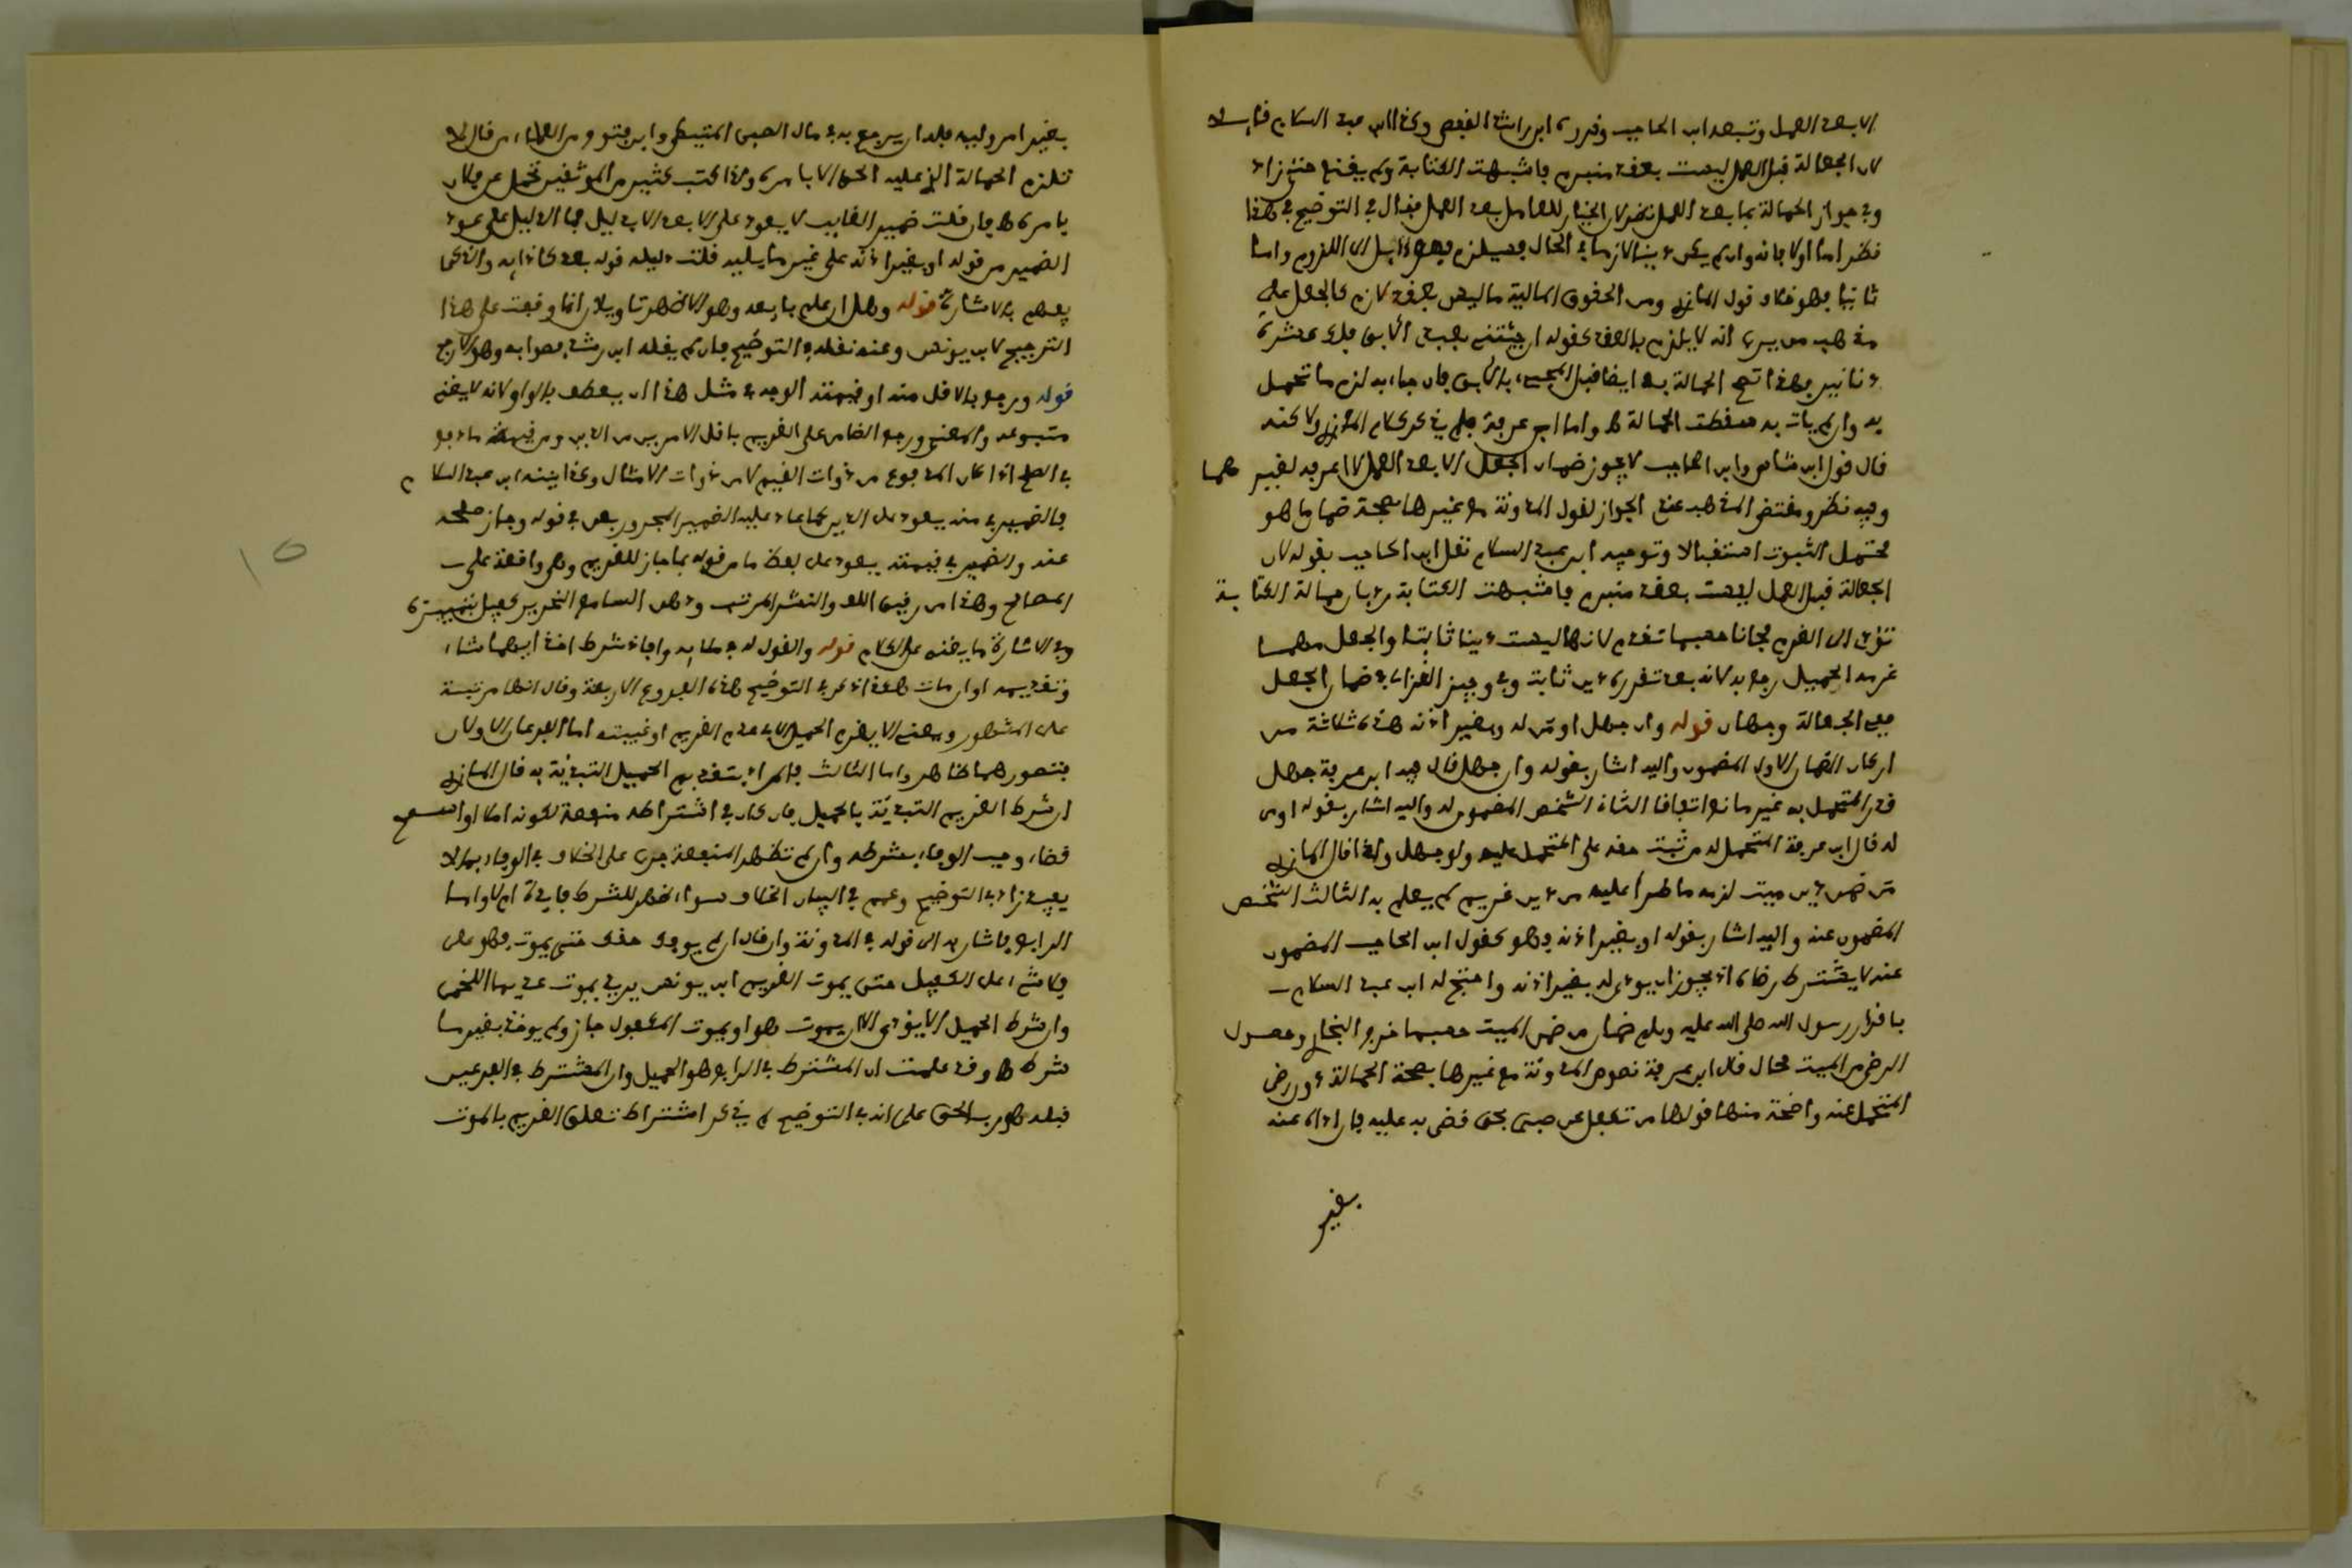 الا بعد العمل وتبعه ابن الحاجب وقرره ابن راشد القفصي وكذا ابن عبد السلام قائلا
لان الجعالة قبل العمل ليست بعقد منبرم فاشبهت الكتابة ولم يقنع حتى زاد
وفي جواز الحمالة بما بعد العمل نظر لان الخيار للعامل بعد العمل فقال في التوضيح في هذا
نظر اما اولا فانه وان لم يكن دينا لازما في الحال فسيلزم فهو ءايل الى اللزوم واما
ثانيا فهو خلاف قول المازري ومن الحقوق المالية ما ليس بعقد لازم كالجعل على
مذهب من يرى انه لا يلزم بالعقد كقوله ان جئتني بعبدي الآبق فلك عشرة
دنانير فهذا تصح الحمالة به ايضا قبل المجيء بالآبق فان جاء به لزم ما تحمل
به وان لم يات به سقطت الحمالة ه واما ابن عرفة فلم يذكر كلام المازري ولا كنه
قال قول ابن شاس وابن الحاجب لا يجوز ضمان الجعل الا بعد العمل لا اعرفه لغيرهما
وفيه نظر ومقتضى المذهب عندي الجواز لقول المدونة مع غيرها بصحة ضمان ما هو
محتمل الثبوت استقبالا وتوجيه ابن عبد السلام نقل ابن الحاجب بقوله لان
الجعالة قبل العمل ليست بعقد منبرم فاشبهت الكتابة يرد بان حمالة الكتابة
تؤدي الى الغرم مجانا حسبما تقدم لانها ليست دينا ثابتا والجعل مهما
غرمه الحميل رجع به لانه بعد تقرره دين ثابت وفي وجيز الغزالي في ضمان الجعل
في الجعالة وجهان قوله وان جهل او من له وبغير اذنه هذه ثلاثة من
اركان الضمان الاول المضمون واليه اشار بقوله وان جهل قال فيه ابن عرفة جهل
قدر المتحمل به غير مانع اتفاقا الثاني الشخص المضمون له واليه اشار بقوله او من
له قال ابن عرفة المتحمل له من ثبت حقه على المتحمل عليه ولو جهل ولذا قال المازري
من ضمن دين ميت لزمه ما طرأ عليه من دين غريم لم يعلم به الثالث الشخص
المضمون عنه واليه اشار بقوله او بغير اذنه وهو كقول ابن الحاجب المضمون
عنه لا يشترط رضاه اذ يجوز ان يودى له بغير اذنه واحتج له ابن عبد السلام
باقرار رسول الله صلى الله عليه وسلم ضمان من ضمن الميت حسبما خرج البخاري وحصول
الرضى من الميت محال قال ابن عرفة نصوص المدونة مع غيرها بصحة الحمالة دون رضى
المتحمل عنه واضحة منها قولها من تكفل عن صبي بحق قضى به عليه فاداه عنه
بغير
بغير امر وليه فله ان يرجع به في مال الصبي المتيطي وابن فتوح ومن العلماء من قال لا
تلزم الحمالة الذي عليه الحق الا بامره ولذا كتب كثير من الموثقين تحمل عن فلان
بامره ه فان قلت ضمير الغايب لا يعود على الابعد الا بدليل فما الدليل على عود
الضمير من قوله او بغير اذنه على غير ما يليه قلت دليله قوله بعد كادايه والذكي
يفهم بالاشارة قوله وهل ان علم بايعه وهو الاظهر تاويلان انما وقعت على هذا
الترجيح لابن يونس وعنه نقله في التوضيح فان لم يقله ابن رشد فصوابه وهو الارجح
قوله ورجع بالاقل منه او قيمته الوجه في مثل هذا ان يعطف بالواو لانه لا يغني
متبوعه والمعنى ورجع الضامن على الغريم باقل الامرين من الدين ومن قيمة ما دفع
في الصلح اذا كان المدفوع من ذوات القيم لا من ذوات الامثال وكذا بينه ابن عبد السلام
فالضمير في منه يعود على الدين كما عاد عليه الضمير المجرور بعن في قوله وجاز صلحه
عنه والضمير في قيمته يعود على لفظ ما من قوله بما جاز للغريم وهي واقعة على
المصالح وهذا من رقيق اللف والنشر المرتب وذهن السامع النحرير كفيل بتمييزه
وفي الاشارة ما يغني عن الكلام قوله والقول له في ملايه وافاد شرط اخذ ايهما شاء
وتقديمه او ان مات هكذا ذكر في التوضيح هذه الفروع الاربعة وقال انها مرتبة
على المشهور ومعنى الا يغرم الحميل الا في عدم الغريم او غيبته اما الفرعان الاولان
فتصورهما ظاهر واما الثالث فالمراد بتقديم الحميل التبدئة به قال المازري
ان شرط الغريم التبدئة بالحميل فان كان في اشتراطه منفعة لكونه املا او اسمح
قضاء وجب الوفاء بشرطه وان لم تظهر المنفعة جرى على الخلاف في الوفاء بما لا
يفيد زاد في التوضيح وعمم في البيان الخلاف سواء ظهر للشرط فايدة ام لا واما
الرابع فاشار به الى قوله في المدونة وان قال ان لم يوفك حقك حتى يموت فهو على
فلا شيء على الكفيل حتى يموت الغريم ابن يونس يريد يموت عديما اللخمي
وان شرط الحميل الا يؤدي الا ان يموت هو او يموت المكفول جاز ولم يوخذ بغير ما
شرط ه وقد علمت ان المشترط في الرابع هو الحميل وان المشترط في الفرعين
قبله هو رب الحق على انه في التوضيح لم يذكر اشتراط تعلق الغريم بالموت
15